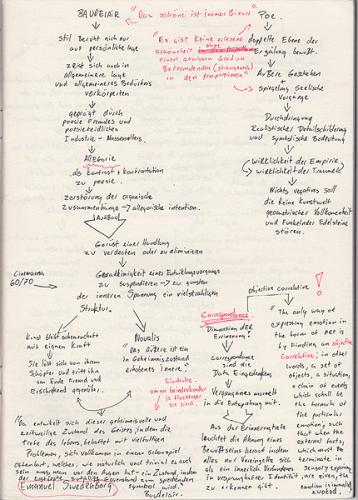 BAUDELAIR "Das schöne ist immer Bizarr" POE.
stil Beruht nicht nur
auf persönliche lage
zeigt sich auch in
allgemeinere lage
und allgemeineres Bedürfnis
verkörperten
geprägt durch
poesie Fremdes und
poesiefeindliches
Industrie -
Allegorie
als kontrast + konfrontation
zu poesie.
zerstörung der organische
zusammenhänge → allegorische intention.
Aufbau
Gerüst einer Handlung
zu verdecken oder zu eliminieren
eines Entwicklungsvorgangs
zu suspendieren → zu gunsten
der inneren Spannung ein vielstrahligen
Struktur.
Cinemama
60/70
"Es gibt keine
schönheit ohne
einen gewissen Grad an
Befremdenden (strangeness)
in den proportionen"
doppelte Ebene der
Erzählung bewußt.
Äußere Geschehen
+
spiegelung seelische
Vorgänge
Durchdringung
Realistischer Detailschilderung
und symbolische Bedeutung
wirklichkeit der Empirie
wirklichkeit der Traumwelt
Nichts negatives soll
die keine kunstwelt
geometrischer Vollkommenheit
und Funkelnder Edelsteine
stören.
Kunst bleibt
mit eigenen kraft
Sie löst sich von ihrem
Schöpfer und tritt ihm
am Ende fremd und
erschreckend gegenüber.
Novalis
"Das äußere ist ein
in Geheimniszustand
erhobenes innere."
Eindrücke
umso beeindruckender
je flüchtiger
sie sind.
Correspondance
Dimension DER
Erinnerung
correspondance
sind die
Data Eingedenkens
Vergangenes murmelt
in der Entsprechung mit.
Aus der Erinnerungstiefe
leuchtet die Ahnung eines
zu erkennen gibt.
objective correlative !
"The only way of
expressing emotion in
the form of art is
by finding an objective
correlative; in other
words, a set of
objects, a situation,
a chain of events
which shall be
the formula of
the particular
emotion; such
that when the
external facts,
which must
terminate in
sensory experience
are given, the
emotion is immediately
evoked.
"Da entwickelt sich dieser geheimnisvolle und
zeitweilige Zustand des Geistes, in dem die
tiefe des lebens, behaftet mit vielfältigen
Problemen, sich vollkommen in einem schauspiel
offenbart, welches, wie natürlich und trivial es auch
sein mag, man vor den Augen hat: ein Zustand, in dem
der erstbeste Gegenstand zum sprechenden
symbol wird."
Baudelair.
EMANUEL Swedenborg